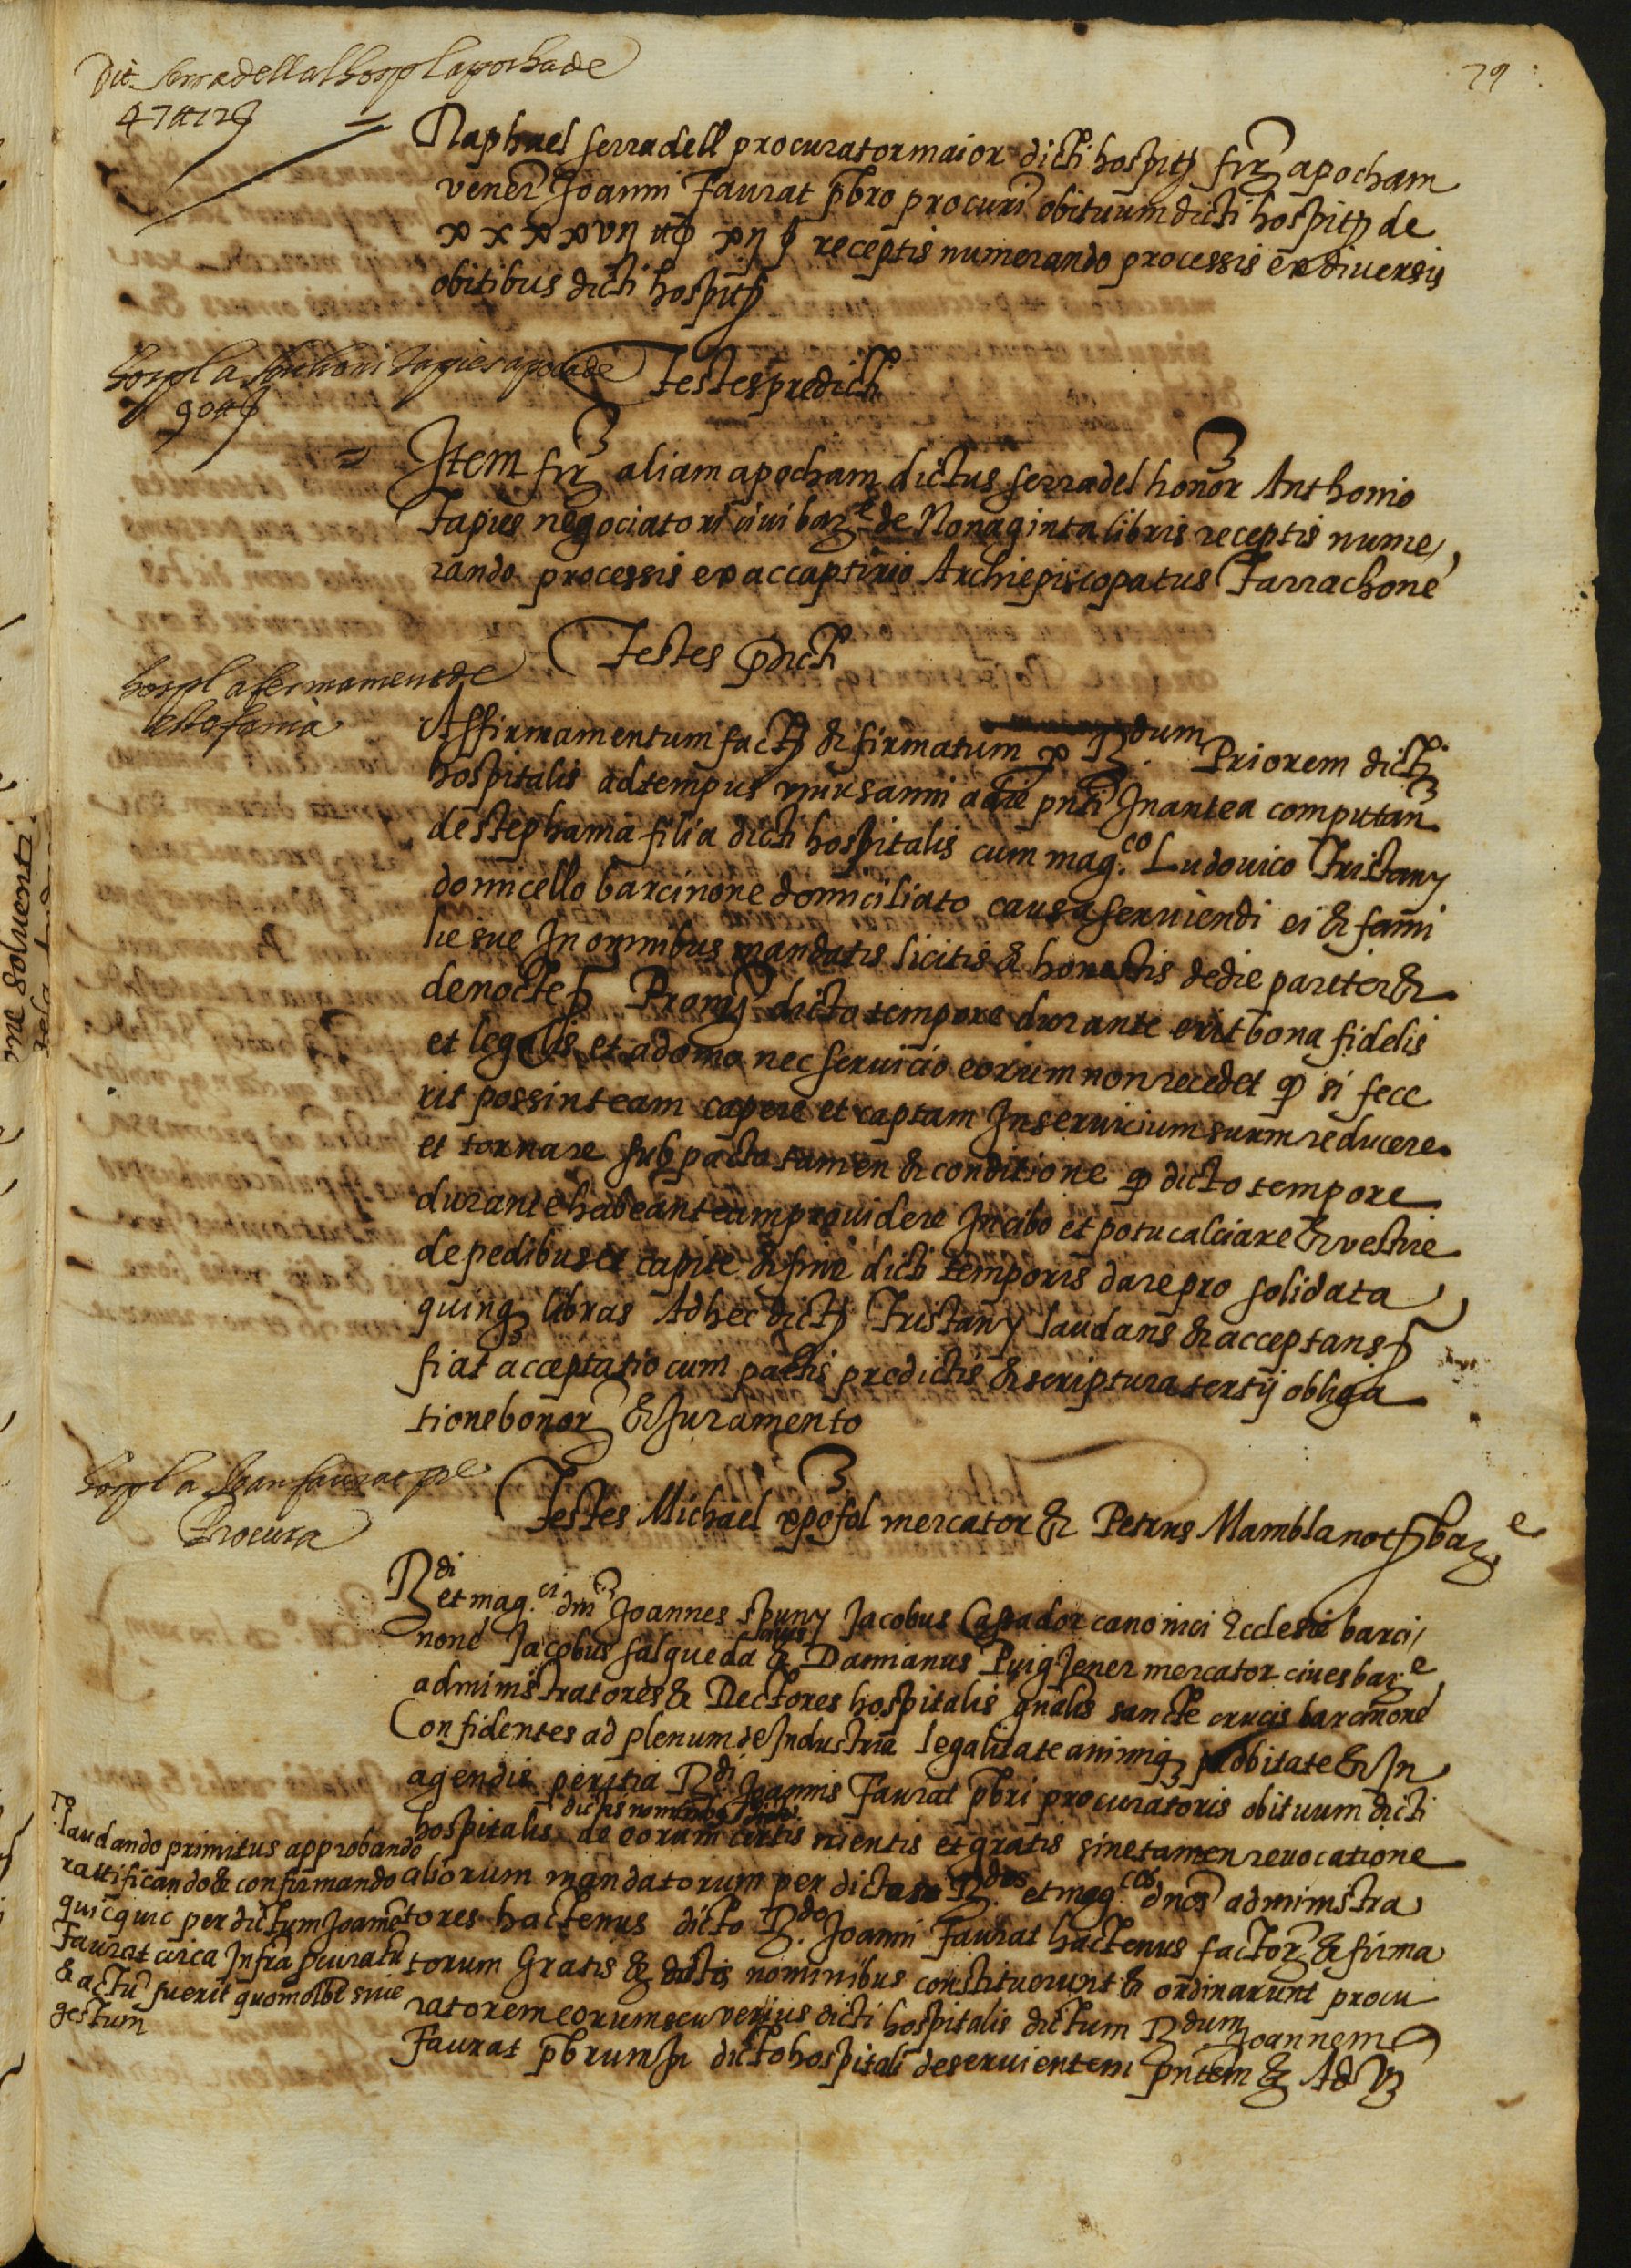 79
Dit Serradell al hospl apocha de
47 ₶ 12 ſ
Raphael serradell procurator maior dicti hospitꝭ firꝫ apocham
venerꝭ Joanni Faurat pbro procuri obituum dicti hospitꝭ de
xxxxvij ₶ xij ſ receptis numerando processis ex diversis
obitibus dicti hospitꝭ
Testes predicti
hospl a Anthoni Tapies apocha de
90 ₶
Item firꝫ aliam apocham dictus serradel honor Anthonio
Tapies negociatori civi barᵉ de Nonaginta libris receptis nume,
rando processis ex accaptirio Archiepiscopatus Tarrachone
Testes pdicti
hospl afermament de
estefania
Affirmamentum factꝭ & firmatum p Rdum Priorem dicti
hospitalis ad tempus unius anni a die pnti In antea computan
de stephania filia dicti hospitalis cum mag.co Ludovico Tristany
domicello barcinone domiciliato causa serviendi ei & fami
lie sue In omnibus mandatis licitis & honestis de die pariter &
de nocte ꝭ Promꝭ dicto tempore durante erit bona fidelis
et legalis et a domo nec servicio eorum non recedet qꝫ si fece
rit possint eam capere et captam In servicium suum reducere
et tornare sub pacto tamen & conditione qꝫ dicto tempore
durante habeant eam providere In cibo et potu calciare & vestire
de pedibus et capite & fine dicti temporis dare pro solidata
quinqꝫ libras Ad hec dictꝭ Tristany laudans & acceptans ꝭ
fiat acceptatio cum pactis predictis & scriptura tertij obliga
tione bonorꝫ & Juramento
Testes Michael xpofol mercator & Petrus Mambla notꝭ barᵉ
hospl a Joan faurat pre
Procura
Rdi et mag.ci dni Joannes Spuny Jacobus Cassador canonici Ecclesie barci,
none Jacobus salgueda civis & Damianus Puig Jener mercator cives barᵉ
administratores & Rectores hospitalis gnalis sancte crucis barcinone
Confidentes ad plenum de Industria legalitate animiqꝫ probitate & In
agendis peritia Rdi Joannis Faurat pbri procuratoris obituum dicti
hospitalis dictis nominibus de eorum certis scientis et gratis sine tamen revocatione
aliorum mandatorum per dictos Rdos et mag.cos dnos administra
tores hactenus dicto Rdo Joanni Faurat hactenus factorꝫ & firma
torum Gratis & dictis nominibus constituerunt & ordinarunt procu
ratorem eorum seu verius dicti hospitalis dictum Rdum Joannem
Faurat pbrum In dicto hospitali deservientem pntem & Ad Vꝫ
laudando primitus approbando
rattificando & confirmando
quicquic per dictum Joanne
Faurat circa Infra pcuratu
& actu fuerit quomolbt sive
gestum